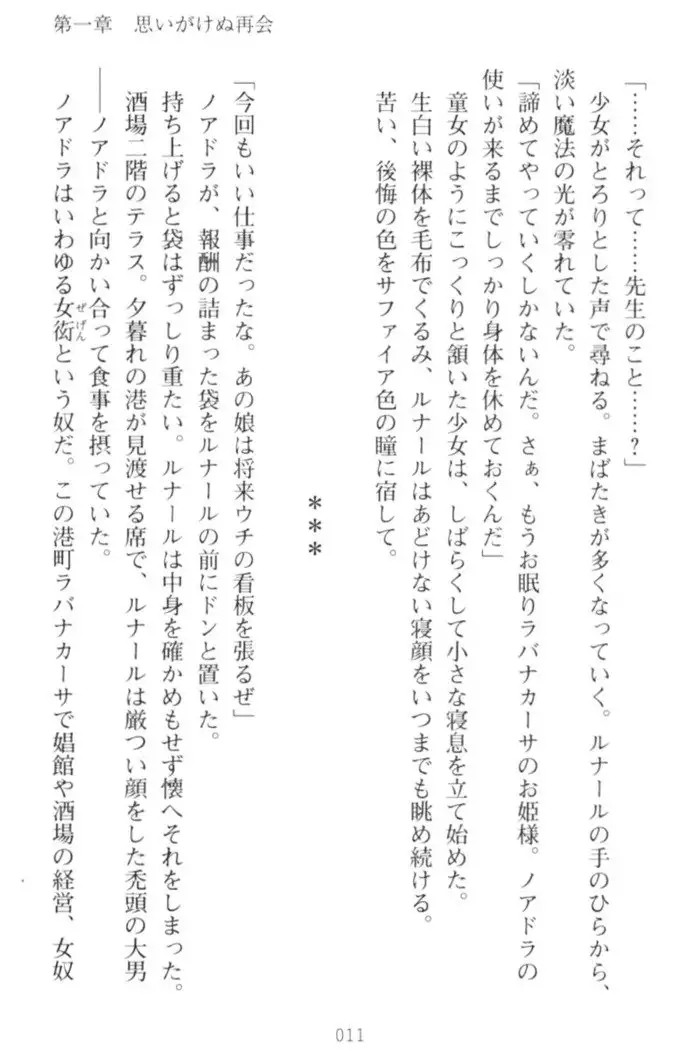 第一章　思いがけぬ再会
「……それって……先生のこと……？」
少女がとろりとした声で尋ねる。まばたきが多くなっていく。ルナールの手のひらから、
淡い魔法の光が零れていた。
「諦めてやっていくしかないんだ。さぁ、もうお眠りラバナカーサのお姫様。ノアドラの
使いが来るまでしっかり身体を休めておくんだ」
童女のようにこっくりと頷いた少女は、しばらくして小さな寝息を立て始めた。
生白い裸体を毛布でくるみ、ルナールはあどけない寝顔をいつまでも眺め続ける。
苦い、後悔の色をサファイア色の瞳に宿して。
＊＊＊
「今回もいい仕事だったな。あの娘は将来ウチの看板を張るぜ」
ノアドラが、報酬の詰まった袋をルナールの前にドンと置いた。
持ち上げると袋はずっしり重たい。ルナールは中身を確かめもせず懐へそれをしまった。
酒場二階のテラス。夕暮れの港が見渡せる席で、ルナールは厳つい顔をした禿頭の大男
――ノアドラと向かい合って食事を摂っていた。
ノアドラはいわゆる女衒ぜげんという奴だ。この港町ラバナカーサで娼館や酒場の経営、女奴
011